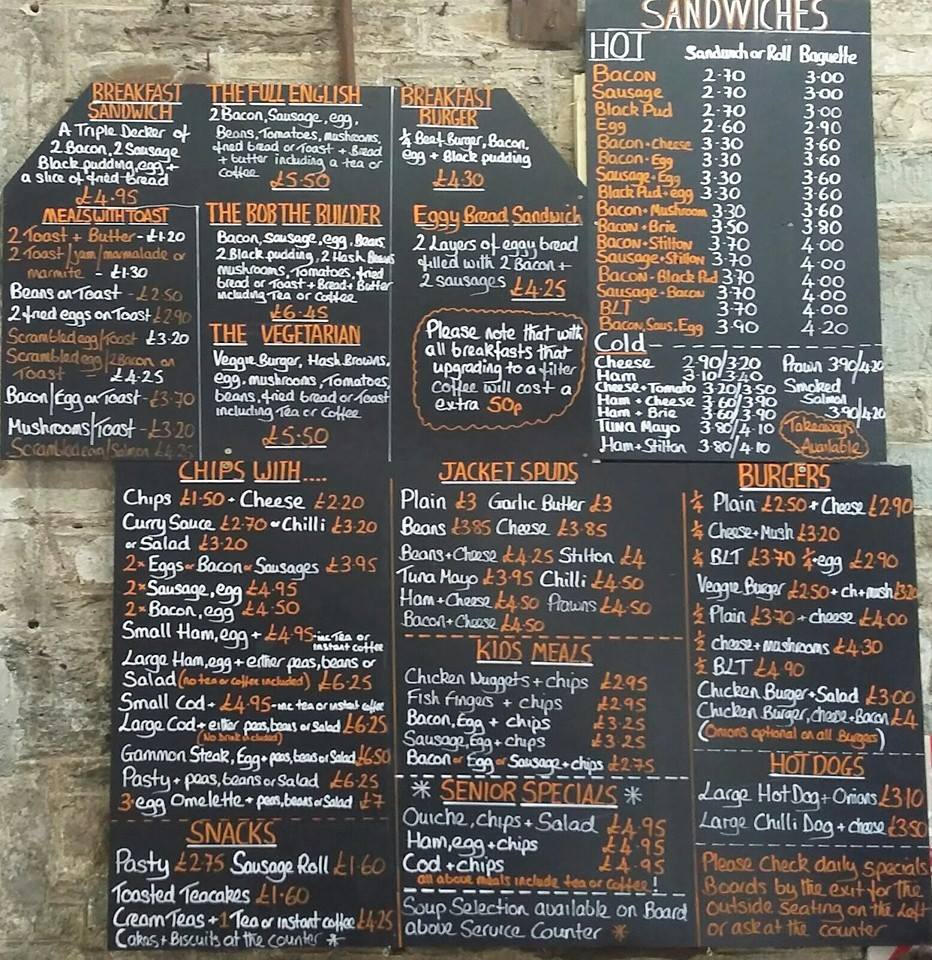 BREAKFAST
SANDWICH
A Triple Decker of
2 Bacon, 2 Sausage
Black pudding, egg +
a slice of fried bread
£4.95
MEALS WITH TOAST
2 Toast + Butter - £1.20
2 Toast/jam/marmalade or
marmite - £1.30
Beans on Toast - £2.50
2 fried eggs on Toast £2.90
Scrambled egg/Toast £3.20
Scrambled egg/2Bacon on
Toast - £4.25
Bacon/Egg on Toast - £3.70
Mushrooms/Toast - £3.20
Scrambled egg/Salmon £4.25
THE FULL ENGLISH
2 Bacon, Sausage, egg,
Beans, Tomatoes, mushrooms,
fried bread or Toast + Bread
+ butter including a tea or
coffee £5.50
THE BOB THE BUILDER
Bacon, Sausage, egg, Beans,
2 Black pudding, 2 Hash Beans
mushrooms, Tomatoes, fried
bread or Toast + Bread + Butter
including Tea or Coffee
£6.45
THE VEGETARIAN
Veggie Burger, Hash Browns,
egg, mushrooms, Tomatoes,
beans, fried bread or Toast
including Tea or Coffee
£5.50
BREAKFAST
BURGER
¼ Beef Burger, Bacon,
egg + Black pudding
£4.30
Eggy Bread Sandwich
2 Layers of eggy bread
filled with 2 Bacon +
2 sausages £4.25
Please note that with
all breakfasts that
upgrading to a filter
coffee will cost a
extra 50p
SANDWICHES
HOT Sandwich or Roll Baguette
Bacon 2.70 3.00
Sausage 2.70 3.00
Black Pud 2.70 3.00
Egg 2.60 2.90
Bacon + Cheese 3.30 3.60
Bacon + Egg 3.30 3.60
Sausage + Egg 3.30 3.60
Black Pud + egg 3.30 3.60
Bacon + Mushroom 3.30 3.60
Bacon + Brie 3.50 3.80
Bacon + Stilton 3.70 4.00
Sausage + Stilton 3.70 4.00
Bacon + Black Pud 3.70 4.00
Sausage + Bacon 3.70 4.00
BLT 3.70 4.00
Bacon, Saus, Egg 3.90 4.20
Cold
Cheese 2.90/3.20
Ham 3.10/3.40
Cheese + Tomato 3.20/3.50
Ham + Cheese 3.60/3.90
Ham + Brie 3.60/3.90
Tuna Mayo 3.80/4.10
Ham + Stilton 3.80/4.10
Prawn 3.90/4.20
Smoked
Salmon
3.90/4.20
Takeaways
Available
CHIPS WITH ....
Chips £1.50 + Cheese £2.20
Curry Sauce £2.70 or Chilli £3.20
or Salad £3.20
2 × Eggs or Bacon or Sausages £3.95
2 × Sausage, egg £4.95
2 × Bacon, egg £4.50
Small Ham, egg + £4.95 - inc Tea or
instant coffee
Large Ham, egg + either peas, beans or
Salad (no tea or coffee included) £6.25
Small Cod + £4.95 - inc tea or instant coffee
Large Cod + either peas, beans or Salad £6.25
(No Drink included)
Gammon Steak, Egg + peas, beans or Salad £6.50
Pasty + peas, beans or Salad £6.25
3 egg Omelette + peas, beans or Salad £7
SNACKS
Pasty £2.75 Sausage Roll £1.60
Toasted Teacakes £1.60
Cream Teas + 1 Tea or instant coffee £4.25
Cakes + Biscuits at the counter *
JACKET SPUDS
Plain £3 Garlic Butter £3
Beans £3.85 Cheese £3.85
Beans + Cheese £4.25 Stilton £4
Tuna Mayo £3.95 Chilli £4.50
Ham + Cheese £4.50 Prawns £4.50
Bacon + Cheese £4.50
KIDS MEALS
Chicken Nuggets + chips £2.95
Fish Fingers + chips £2.95
Bacon, Egg + chips £3.25
Sausage, Egg + chips £3.25
Bacon or Egg or Sausage + chips £2.75
* SENIOR SPECIALS *
Quiche, chips + Salad £4.95
Ham, egg + chips £4.95
Cod + chips £4.95
all above meals include tea or coffee !
Soup Selection available on Board
above Service Counter *
BURGERS
¼ Plain £2.50 + Cheese £2.90
¼ Cheese + Mush £3.20
¼ BLT £3.70 ¼ + egg £2.90
Veggie Burger £2.50 + ch + mush £3.20
½ Plain £3.70 + cheese £4.00
½ cheese + mushrooms £4.30
½ BLT £4.90
Chicken Burger + Salad £3.00
Chicken Burger, cheese + Bacon £4
(Onions optional on all Burgers)
HOT DOGS
Large Hot Dog + Onions £3.10
Large Chilli Dog + cheese £3.50
Please Check daily specials
Boards by the exit for the
outside seating on the left
or ask at the counter